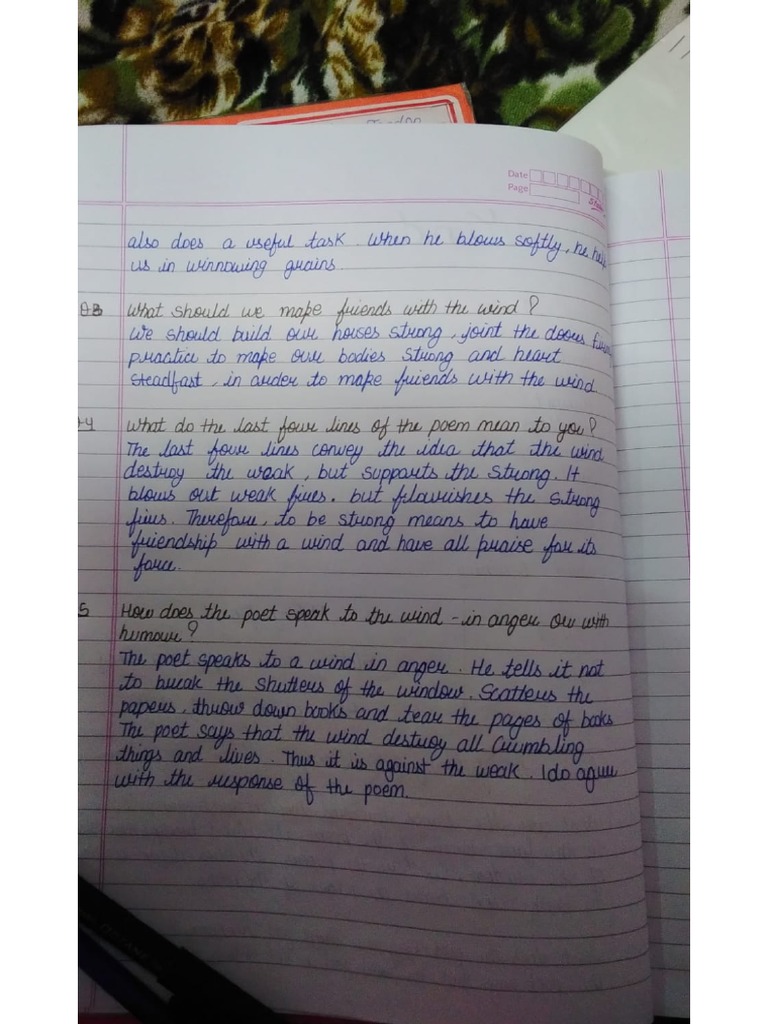 Date
Page
also does a useful task. When he blows softly, he help
us in winnowing grains.
Q3 What should we make friends with the wind?
We should build our houses strong, joint the doors
practice to make our bodies strong and heart
steadfast, in order to make friends with the wind
What do the last four lines of the poem mean to you?
The last four lines convey the idea that the wind
destroy the weak, but supports the strong. It
blows out weak fires. but flourishes the strong
fires. Therefore, to be strong means to have
friendship with a wind and have all praise for its
force.
5 How does the poet speak to the wind - in anger or with
humour?
The poet speaks to a wind in anger. He tells it not
to break the shutters of the window. Scatters the
papers, throw down books and tear the pages of books
The poet says that the wind destroy all Crumbling
things and lives. Thus it is against the weak. I do agree
with the response of the poem.